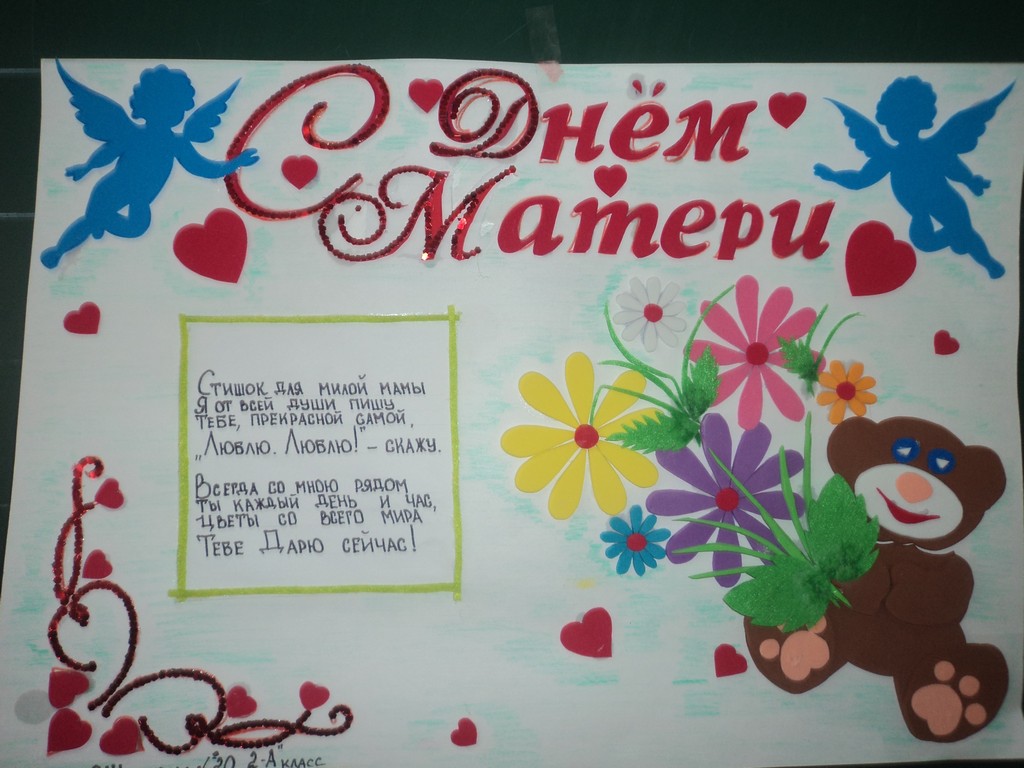 С Днём
Матери
Стишок для милой мамы
Я от всей души пишу
тебе, прекрасной самой,
„Люблю. Люблю!" – скажу.
Всегда со мною рядом
ты каждый день и час,
Цветы со всего мира
Тебе Дарю сейчас!
20 2-А" класс